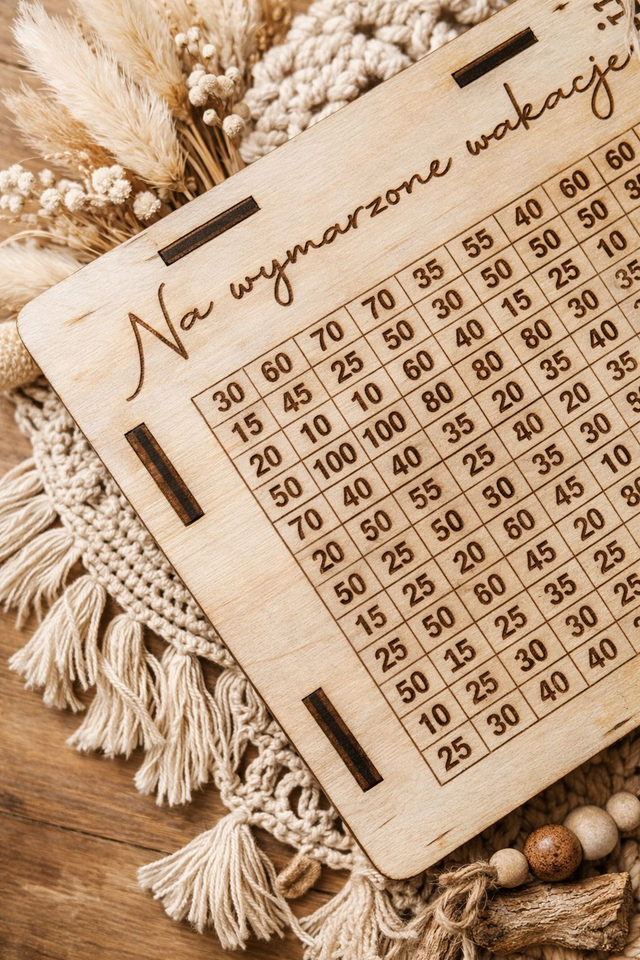 Na wymarzone wakacje
30 60 70 70 35 55 40 60 60
15 45 25 50 30 50 50 50
20 10 10 60 40 15 25 10
50 100 100 80 80 80 30 35
70 40 40 35 20 35 40
20 50 55 25 40 20
50 25 50 30 35 30
15 25 20 60 45 10
25 50 60 45 20
50 15 25 35 25
10 25 30 30 25
25 30 40 40